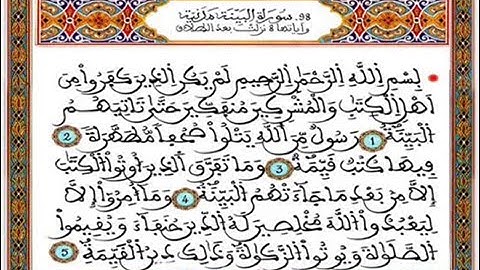 98. سورة البينة مدنية
وآياتها 8 نزلت بعد الطلاق
بِسْمِ اللَّهِ الرَّحْمَٰنِ الرَّحِيمِ لَمْ يَكُنِ الذِينَ كَفَرُوا مِنَ
اَهْلِ الْكِتَٰبِ وَالْمُشْرِكِينَ مُنفَكِّينَ حَتَّىٰ تَاتِيَهُمُ
الْبَيِّنَةُ 1 رَسُولٌ مِّنَ اللَّهِ يَتْلُوا صُحُفاً مُّطَهَّرَةً 2
فِيهَا كُتُبٌ قَيِّمَةٌ 3 وَمَا تَفَرَّقَ الذِينَ أُوتُوا الْكِتَٰبَ
إِلاَّ مِنۢ بَعْدِ مَا جَآءَتْهُمُ الْبَيِّنَةُ 4 وَمَآ أُمِرُوٓا إِلاَّ
لِيَعْبُدُوا اللَّهَ مُخْلِصِينَ لَهُ الدِّينَ حُنَفَآءَ وَيُقِيمُوا
الصَّلَوٰةَ وَيُوتُوا الزَّكَوٰةَ وَذَٰلِكَ دِينُ الْقَيِّمَةِ 5